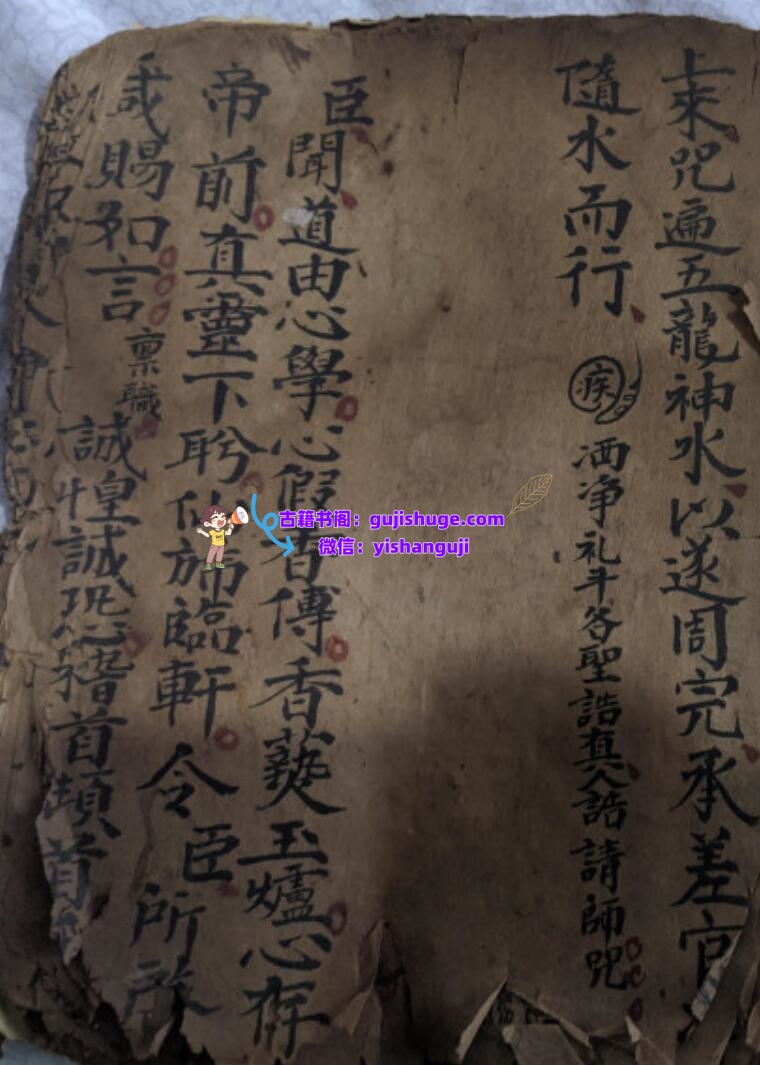 上來咒遍五龍神水以遂周完承差官
隨水而行
疾
洒净礼斗各聖誥真人誥請師咒
臣聞道由心學心假香傳香爇玉爐心存
帝前真靈下盻仙旆臨軒令臣所啟
咸賜如言
稟職
誠惶誠恐稽首頓首
古籍书阁：gujishuge.com
微信：yishanguji